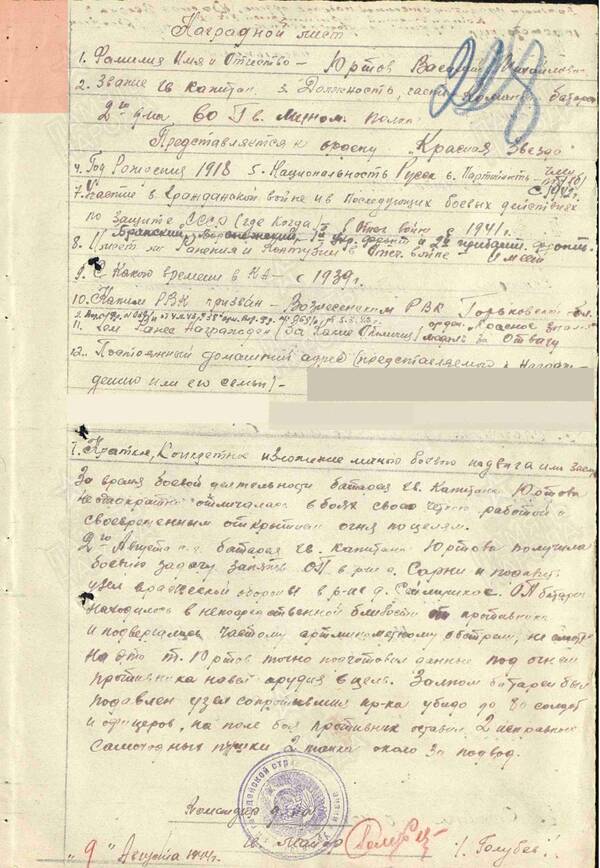 Наградной лист
1. Фамилия Имя и Отчество – Юртов Василий Михайлович
2. Звание гв. капитан 3. Должность, часть Команд. батареи
2го д-на 60 Гв. Мином. Полка
Представляется к ордену "Красная Звезда"
4. Год Рождения 1918 5. Национальность Русск 6. Партийность – Член
ВКП(б)
с 1942 г.
7. Участие в Гражданской войне и в Последующих боевых действиях
по защите СССР (где когда) в Отеч. войне с 1941 г.
Брянский, Воронежский, 1й Укр. фронт и 2й прибалт. фронт.
8. Имеет ли Ранения и контузии в Отеч. войне имеет
9. С Какого времени в КА – с 1939 г.
10. Каким РВК призван – Вознесенским РВК Горьковской обл.
11. Чем Ранее Награжден (За Какие Отличия) орден. "Красное знамя"
медаль за Отвагу
12. Постоянный домашний адрес (представляемого к Награж-
дению или его семьи) –
1. Краткое, Конкретное изложение личного боевого подвига или засл
За время боевой деятельности батарея гв. Капитана Юртова
неоднократно отличалась в боях своей четкой работой и
своевременным открытием огня по целям.
2го Августа с.г. батарея гв. капитана Юртова получила
боевую задачу занять ОП в р-не д. Сарни и подавить
узел вражеской обороны в р-не д. ОП батареи
находилось в непосредственной близости от противника
и подвергалась частому артминометному обстрелу, не смотря
на это т. Юртов точно подготовил данные под огнем
противника навел орудия в цель. Залпом батареи был
подавлен узел сопротивления пр-ка убито до 80 солдат
и офицеров, на поле боя противник оставил 2 исправные
самоходные пушки 2 танка около 30 подвод.
Командир д-на
гв. Майор /Голубев/
"9" Августа 1944 г.